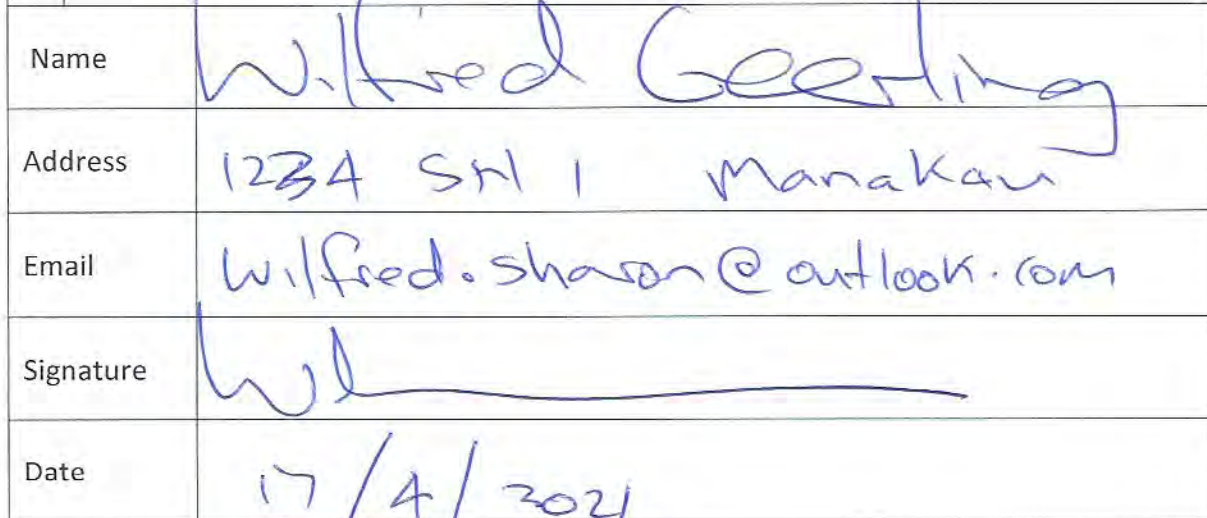 Name Wilfred Geerling
Address 1234 SH 1 Manakau
Email wilfred.sharon@outlook.com
Signature
Date 17/4/2021